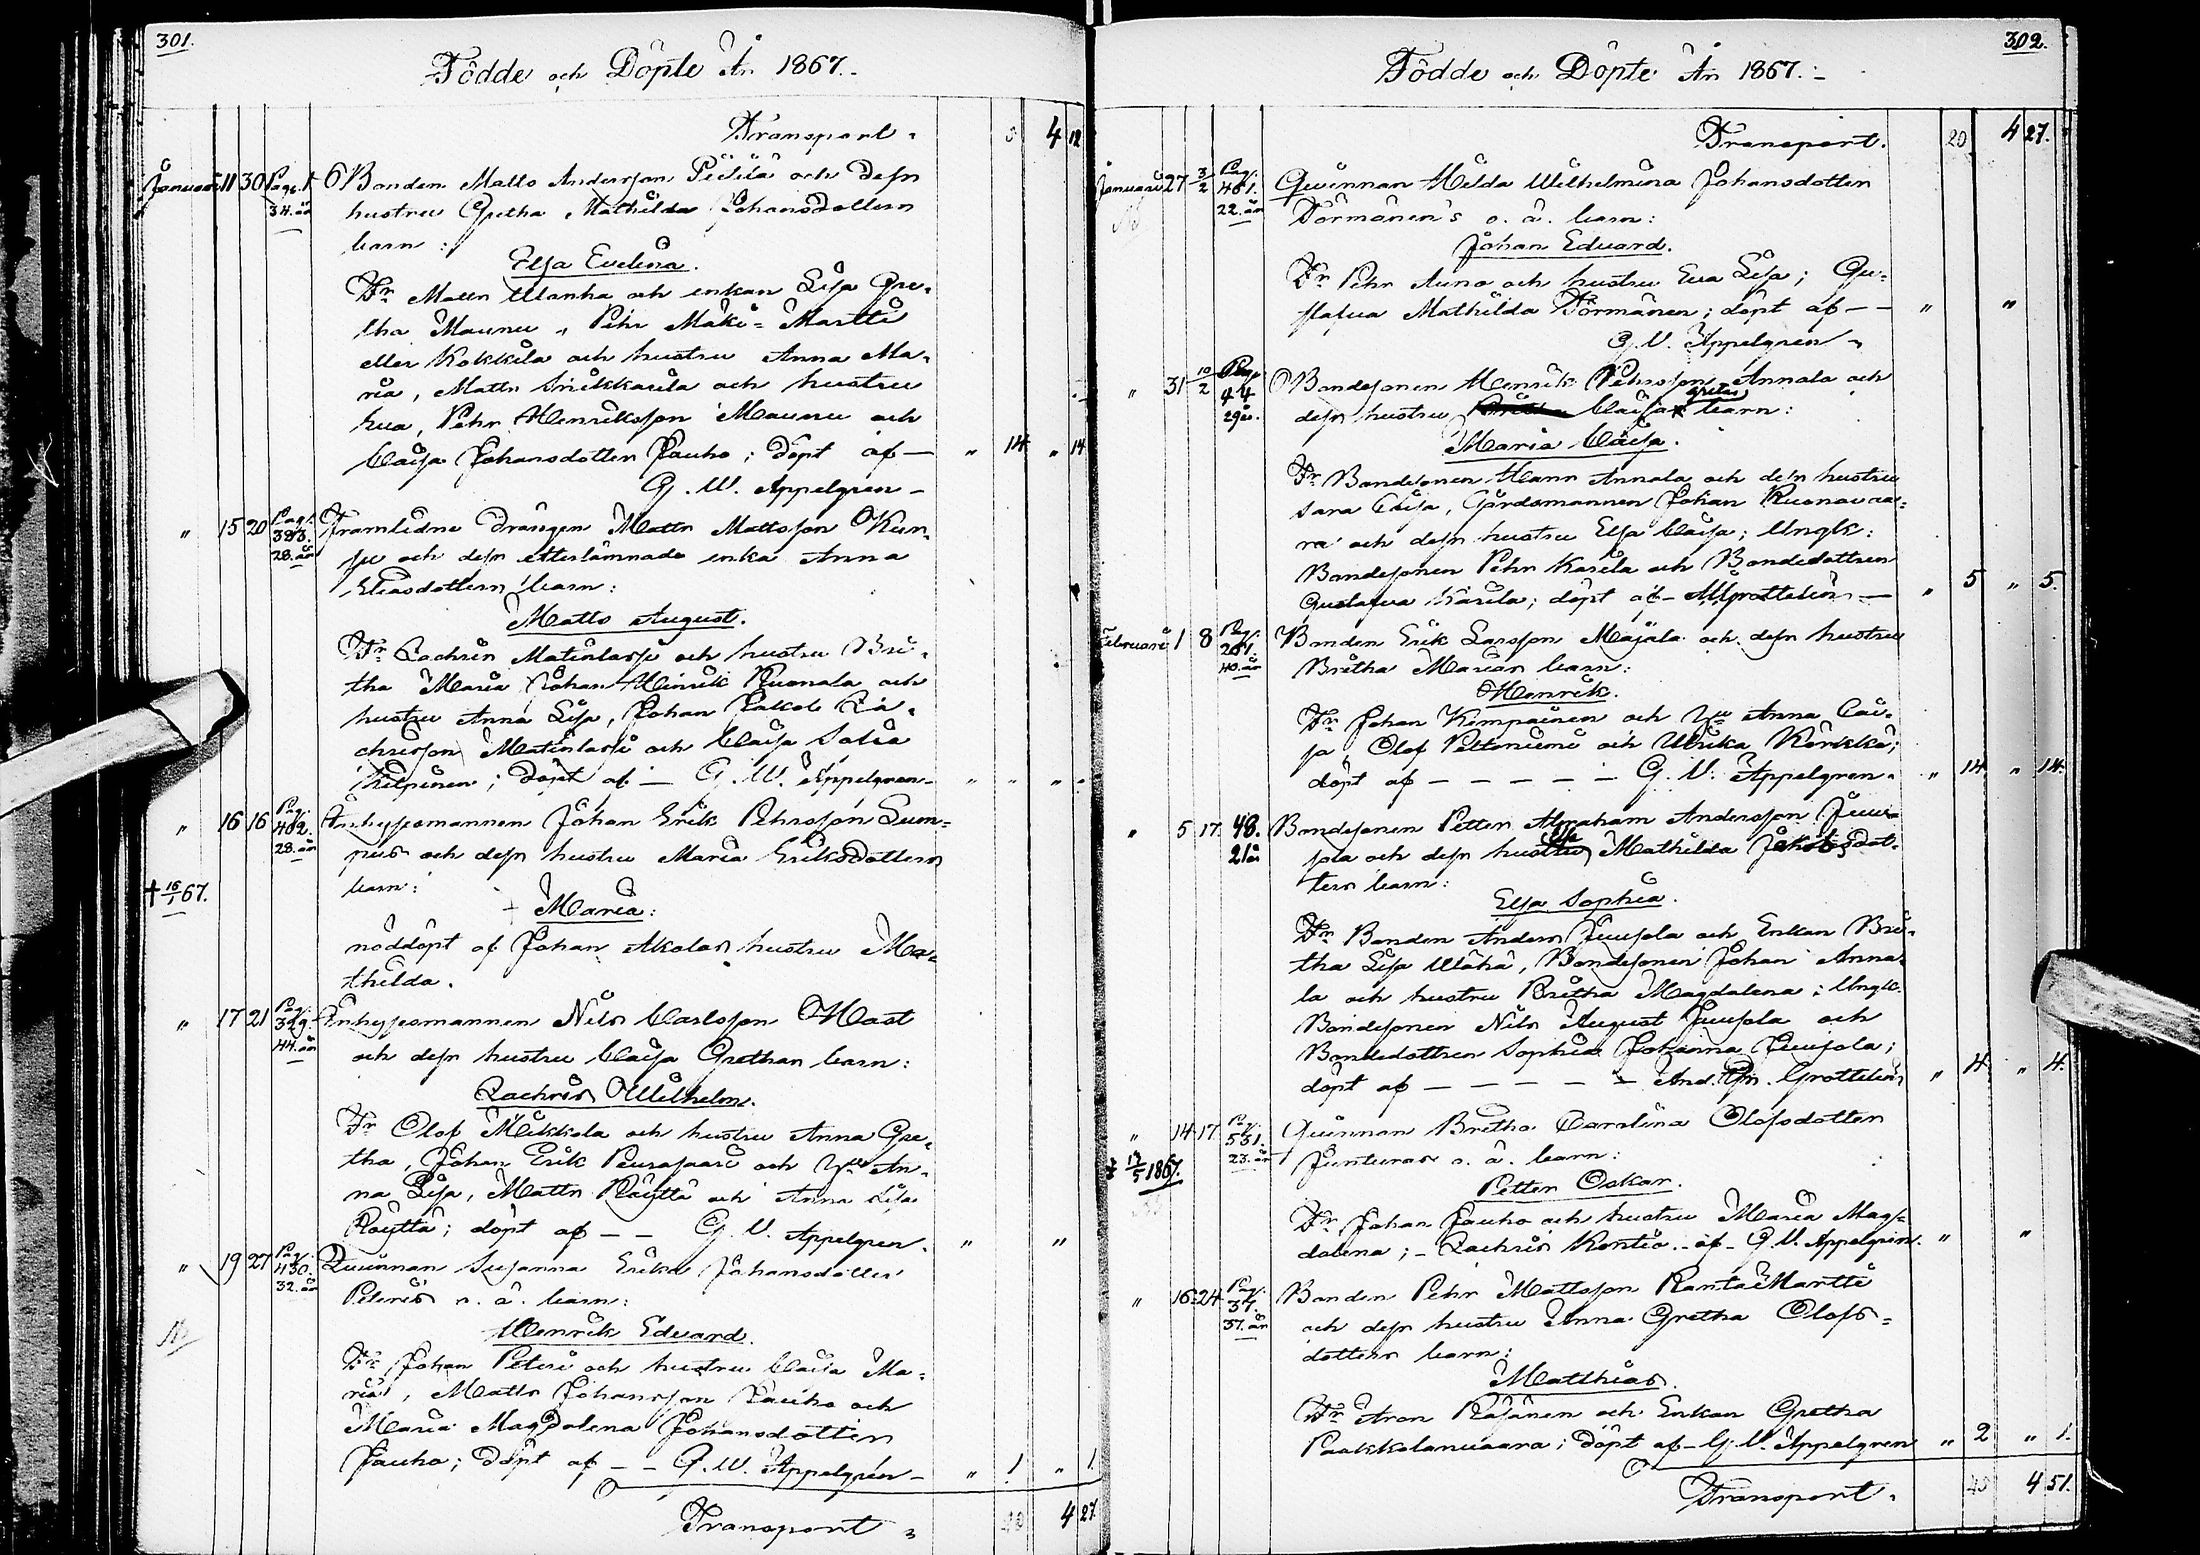 301.
Födde och Döpte År 1867.
Transport 4 12
Januari 11 30 Pag. 1. Bonden Matts Andersson Pietilä och dess
34. år hustru Gretha Mathilda Johansdotters
barn:
Elsa Evelina.
Fr Matts Ulanha och enkan Lisa Gre-
tha Maunu, Pehr Mäki-Martti
eller Kokkila och hustru Anna Ma-
ria, Matts Snikkarila och hustru
Eva, Pehr Henriksson Maunu och
Caisa Johansdotter Jauho; döpt af — " 14 " 14
G. W. Appelgren
" 15 20 Pag. 383. Framlidne Drängen Matts Mattsson
28. år och dess efterlämnade enka Anna
Eliasdotters barn:
Matts August.
Fr Zachris Matinlassi och hustru Bri-
tha Maria, Johan Henrik Kuonala och
hustru Anna Lisa, Johan Jakob Za-
chrisson Matinlassi och Caisa Sofia
Kilpinen; döpt af — G. W. Appelgren
" 16 16 Pag. 402. Inhysesmannen Johan Erik Pehrsson Lum-
28. år pus och dess hustru Maria Eriksdotters
† 16/1 67. barn:
Maria:
nöddöpt af Johan Akolas hustru Ma-
thilda.
" 17 21 Pag. 349. Inhysesmannen Nils Carlsson Hast
44. år och dess hustru Caisa Grethas barn:
Zachris Wilhelm.
Fr Olof Mikkola och hustru Anna Gre-
tha, Johan Erik Peurasaari och An-
na Lisa, Matts Räyttä och Anna Lisa
Räyttä; döpt af — — G. W. Appelgren. " "
" 19 27 Pag. 430. Quinnan Susanna Erika Johansdotter
32. år Peteris o. ä. barn:
Henrik Eduard.
Fr Johan Peteri och hustru Caisa Ma-
ria, Matts Johansson Jauho och
Maria Magdalena Johansdotter
Jauho; döpt af — — G. W. Appelgren — " 1 " 1
Transport 4 27
302.
Födde och Döpte År 1867.
Transport. 20 4 27.
Januari 27 3/2 Pag. 461. Quinnan Hilda Wilhelmina Johansdotter
22. år Törmänen's o. ä. barn:
Johan Eduard.
Fr Pehr Auno och hustru Eva Lisa; Gu-
stafva Mathilda Törmänen; döpt af — — " "
G. W. Appelgren
" 31 10/2 Pag. 44 Bondesonen Henrik Pehrsson Annala och
29 år. dess hustru Caisa Gretas barn:
Maria Caisa.
Fr Bondesonen Mann Annala och dess hustru
Sara Caisa, Gårdsmannen Johan Kuonavaa-
ra och dess hustru Elsa Caisa; Ungk:
Bondesonen Pehr Karila och Bondedottren
Gustafva Karila; döpt af — — " 5 " 5.
Februari 1 8 Pag. 261. Bonden Erik Larsson Majala och dess hustru
40. år Britha Marias barn:
Henrik.
Fr Johan Kimpainen och Anna Cai-
sa, Olof Peltoniemi och Ulrika Körkkä;
döpt af — — — — — G. W. Appelgren. " 14 " 14.
" 5 17. 48. Bondesonen Petter Abraham Andersson Juu-
21 år sola och dess hustru Mathilda Jakobsdot-
ters barn:
Elsa Sophia.
Fr Bonden Anders Juusola och Enkan Bri-
tha Lisa Wähä, Bondesonen Johan Anna-
la och hustru Britha Magdalena; Ungk.
Bondesonen Nils August Juusola och
Bondedottren Sophia Johanna Juusola;
döpt af — — — — — And. Grottelius " 4 " 4.
" 14 17 Pag. 551. Quinnan Britha Carolina Olofsdotter
† 13/5 1867. 23. år Junturas o. ä. barn:
Petter Oskar.
Fr Johan Jauho och hustru Maria Mag-
dalena; — Zachris Kontio. — af — G. W. Appelgren. " "
" 16 24 Pag. 37. Bonden Pehr Mattsson RantaMartti
37. år och dess hustru Anna Gretha Olofs-
dotters barn:
Matthias.
Fr Aron Räsänen och Enkan Gretha
Paakkolanvaara; döpt af — G. W. Appelgren " 2 " 1.
Transport. 4 51.